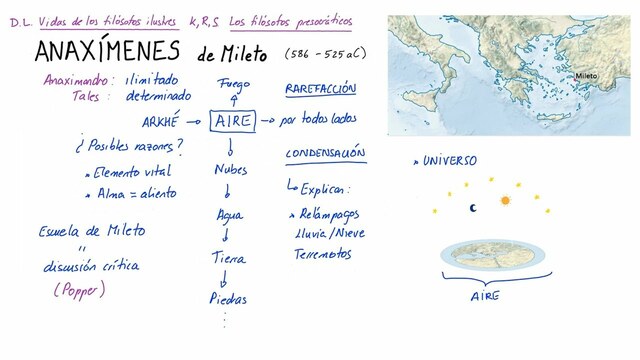 D.L. Vidas de los filósofos ilustres K,R,S Los filósofos presocráticos
ANAXÍMENES de Mileto (586 - 525 aC)
Anaximandro: ilimitado
Tales: determinado
Fuego
RAREFACCIÓN
ARKHÉ → AIRE → por todos lados
¿Posibles razones?
* Elemento vital
* Alma = aliento
CONDENSACIÓN
Nubes
Explicar:
Agua
* Relámpagos
Lluvia/Nieve
Terremotos
Tierra
Piedras
Escuela de Mileto
"
discusión crítica
(Popper)
Mileto
* UNIVERSO
AIRE